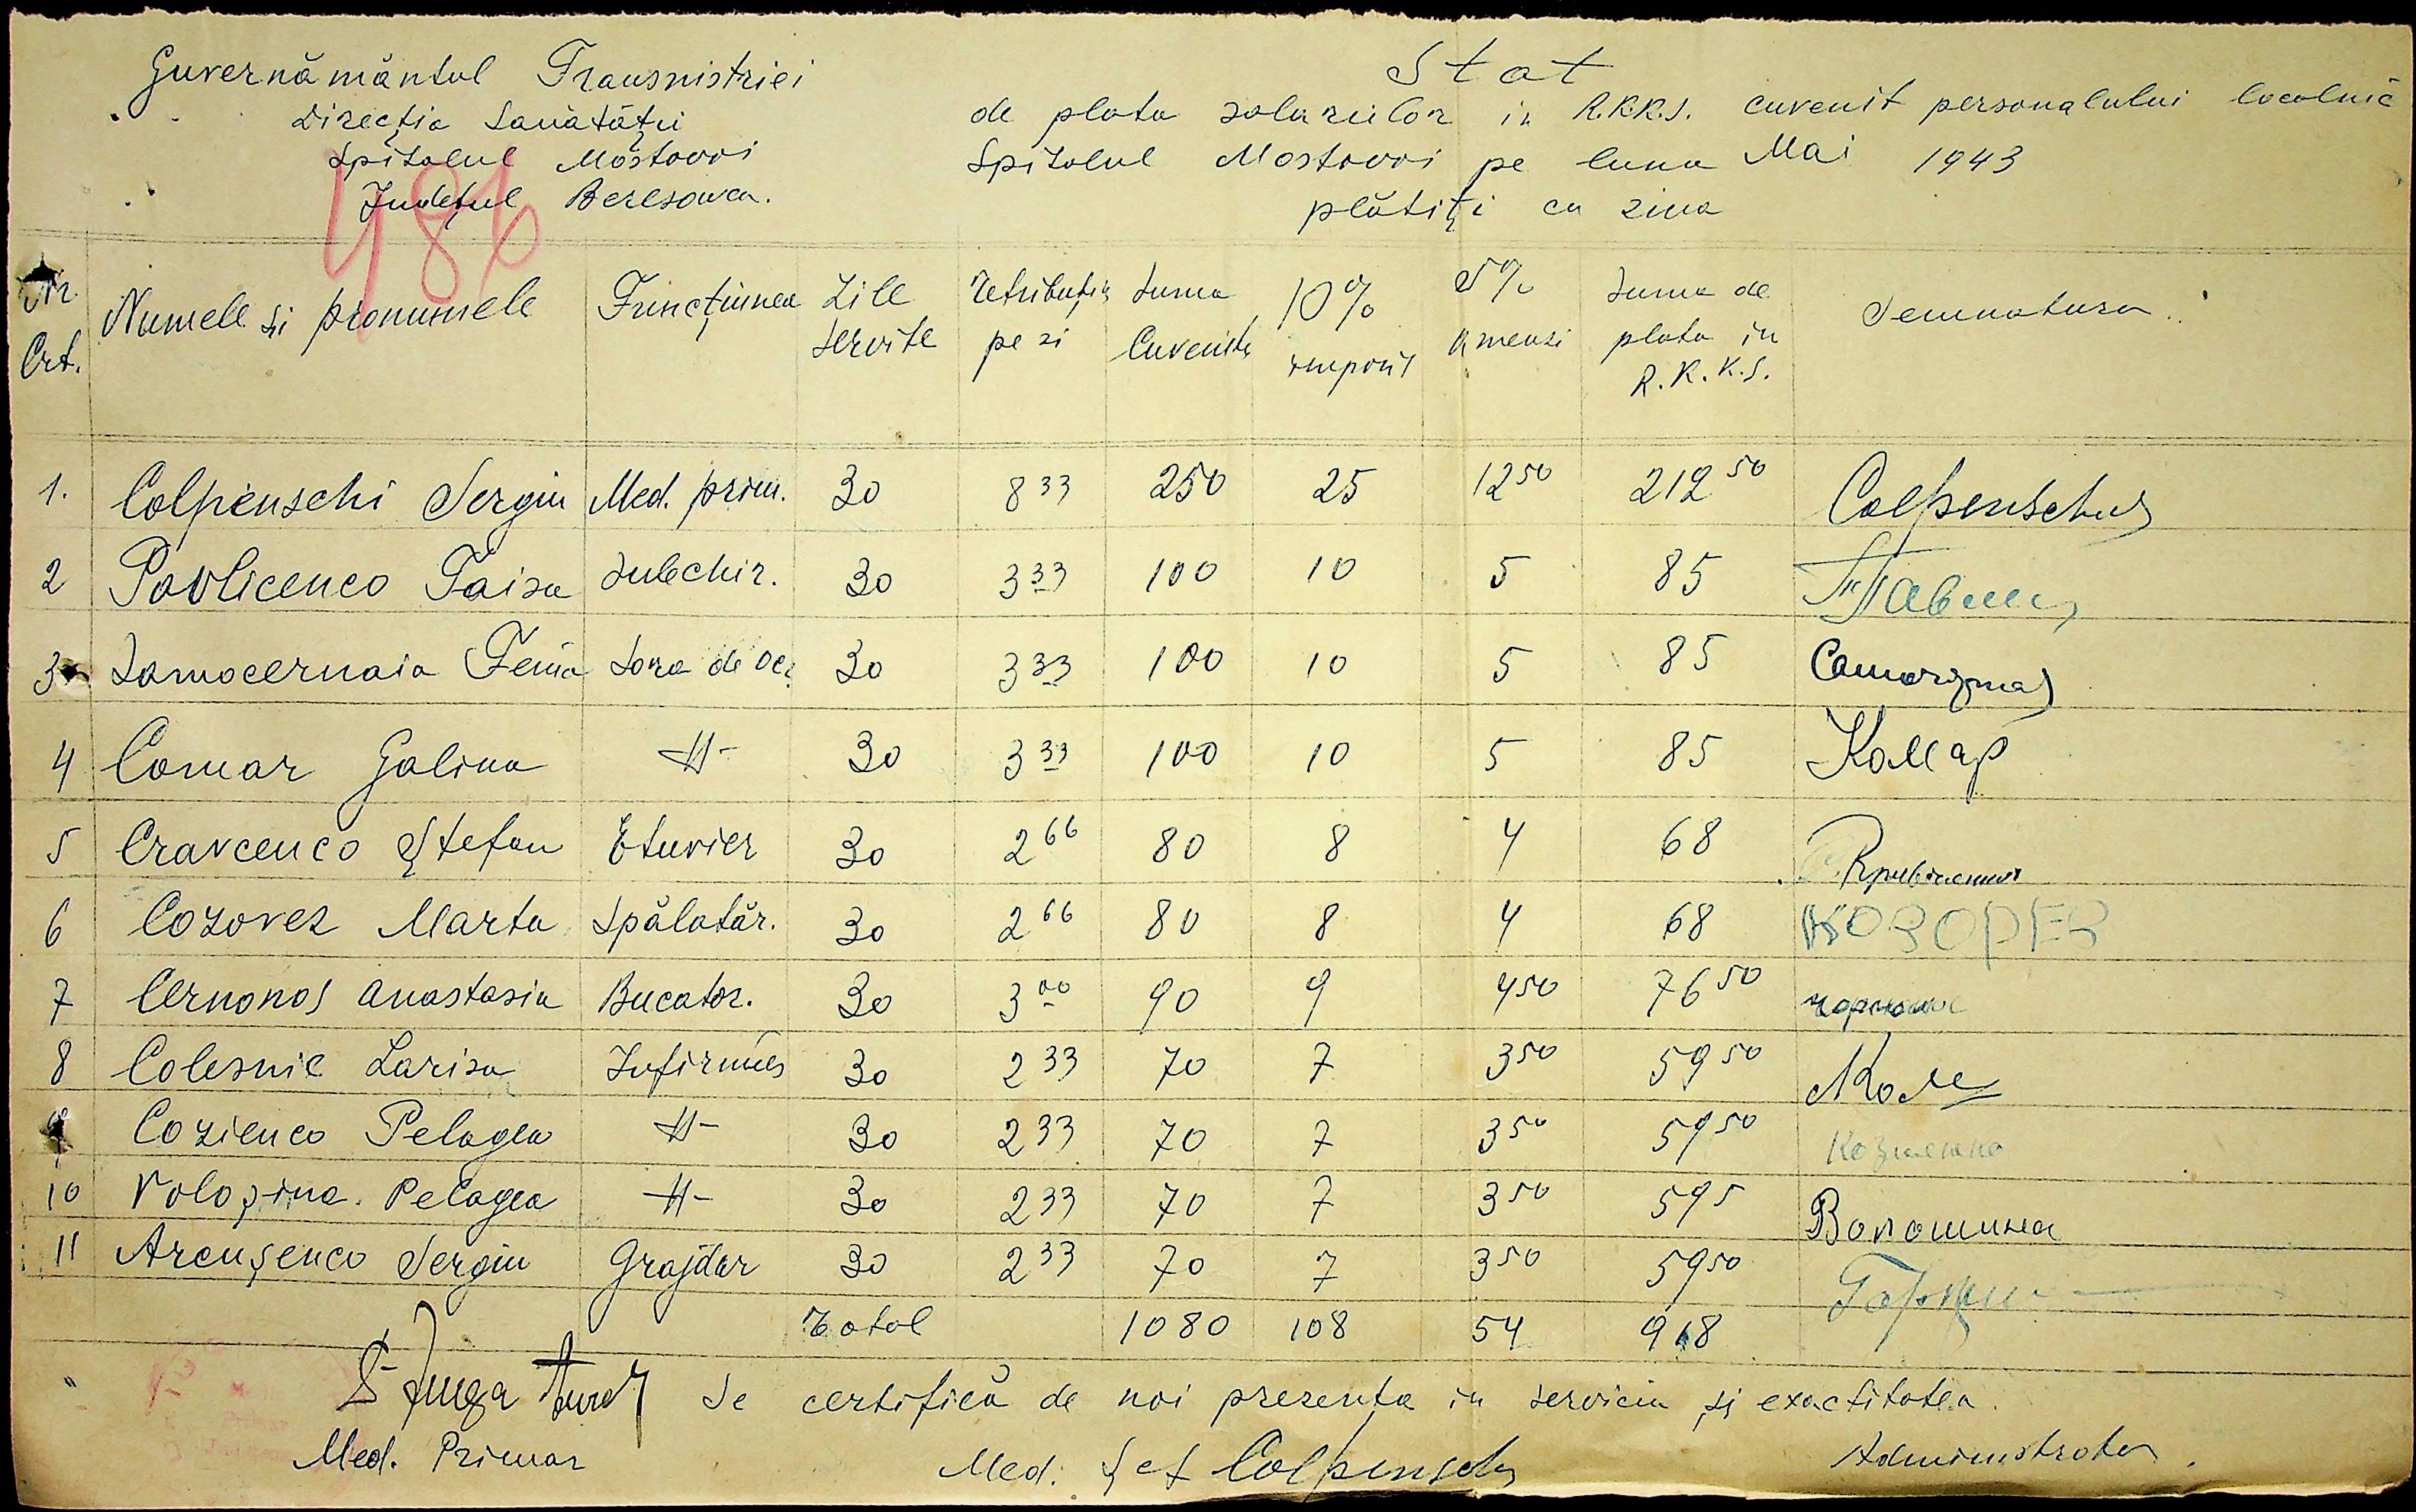 Guvernământul Transnistriei
Direcția Sanătăței
Spitalul Mostovoi
Județul Beresovca.
486
Stat
de plata salariilor in R.K.K.S. cuvenit personalului localnic
Spitalul Mostovoi pe luna Mai 1943
plătiți cu ziua
Nr. Crt. Numele si pronumele Funcțiunea Zile servite Retribuția pe zi Suma Cuvenită 10% impozit 5% amenzi Suma de plata in R.K.K.S. Semnatura
1. Colpenschi Sergiu Med. prim. 30 8 33 250 25 12 50 212 50 Colpenschi
2 Pavlicenco Taisa Subchir. 30 3 33 100 10 5 85
3 Samocernaia Fenia Sora de oc. 30 3 33 100 10 5 85
4 Comar Galina -//- 30 3 33 100 10 5 85 Комар
5 Cravcenco Ștefan Etuvier 30 2 66 80 8 4 68
6 Cozovez Marta Spălatăr. 30 2 66 80 8 4 68
7 Cernonos Anastasia Bucatar. 30 3 00 90 9 4 50 76 50
8 Colesnic Larisa Infirmies 30 2 33 70 7 3 50 59 50
9 Cozienco Pelagea -//- 30 2 33 70 7 3 50 59 50
10 Voloșina Pelagea -//- 30 2 33 70 7 3 50 59 5 Волошина
11 Arcușenco Sergiu Grajdar 30 2 33 70 7 3 50 59 50
Total 1080 108 54 918
Se certifică de noi prezența in serviciu și exactitatea.
Med. Primar Med. Șef Colpenschi Administrator